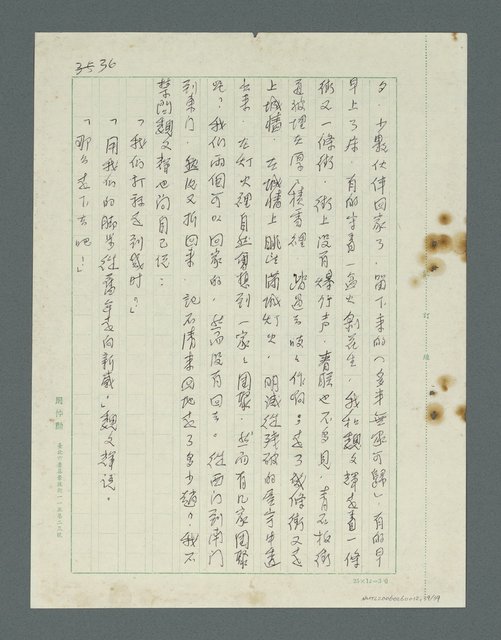 3536
夕,少數伙伴回家了,留下來的(多半無家可歸)有的早
早上了床,有的守着一盞火剝花生,我和魏文輝走着一條
街又一條街,街上沒有爆竹声,春联也不多見,青石板街
道被埋在厚厚積雪裡,踏過去吱吱作响;走了幾條街又走
上城牆,在城牆上眺望滿城灯火,明滅從殘破的屋宇中透
出來,在灯火裡自然會想到一家家團聚,然而有几家團聚
呢?我們兩個可以回家的,然而沒有回去。從西门到南门
到東门,然後又折回來,記不清來回地走了多少趟,我不
禁問魏文輝也问自己說:
「我們打算走到幾時?」
「用我們的脚步從舊年走向新歲。」魏文輝說。
「那么走下去吧!」
訂
線
25×12=30